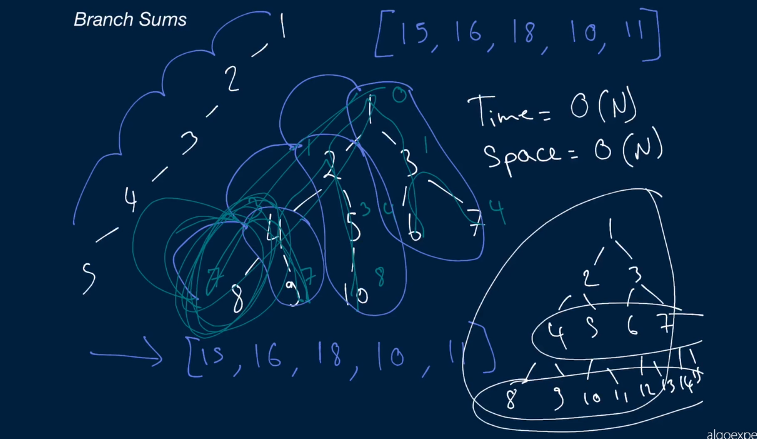 Branch Sums
[15, 16, 18, 10, 11]
Time = O(N)
Space = O(N)
1
2
3
4
5
1 0
2 1 3 1
4 3 5 3 6 4 7 4
7 8 7 9 8 10
→ [15, 16, 18, 10, 11]
1
2 3
4 5 6 7
8 9 10 11 12 13 14 15
algoexpe